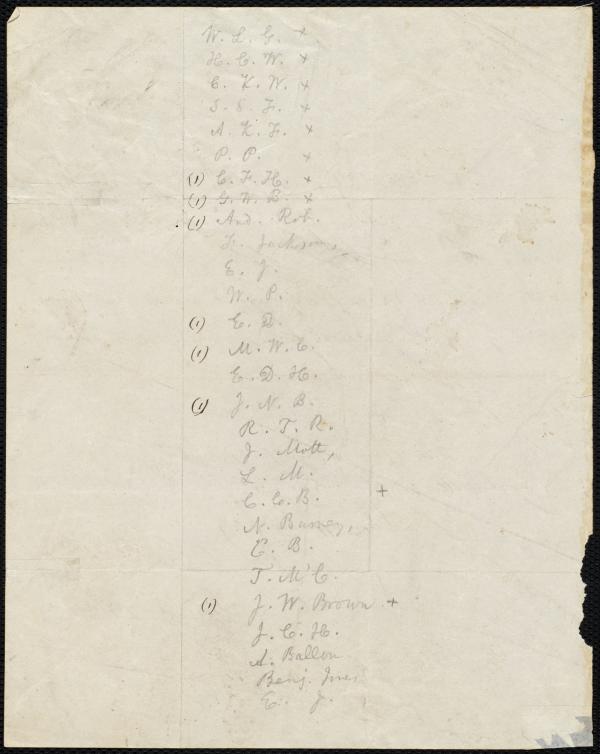 W. L. G. +
H. C. W. +
C. K. W. +
S. S. F. +
A. K. F. +
P. P. +
(1) C. F. H. +
(1) G. W. B. +
(1) And. Rob.
F. Jackson,
E. J.
W. P.
(1) E. D.
(1) M. W. C.
E. D. H.
(1) J. N. B.
R. T. R.
J. Mott,
L. M.
C. C. B. +
N. Barney,
E. B.
T. McC.
(1) J. W. Brown +
J. C. H.
A. Ballou
Benj. Jones
E. J.